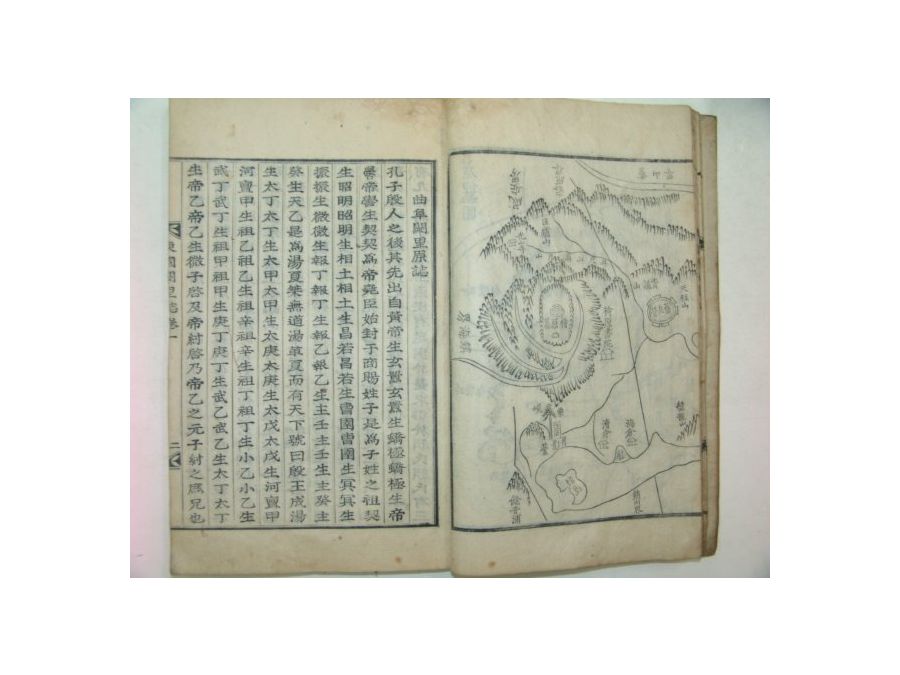 天柱山
海倉
曲阜闕里原誌
孔子殷人之後其先出自黃帝生玄囂玄囂生蟜極蟜極生帝
嚳帝嚳生契契爲帝堯臣始封于商賜姓子是爲子姓之祖契
生昭明昭明生相土相土生昌若昌若生曺圉曺圉生冥冥生
振振生微微生報丁報丁生報乙報乙生主壬主壬生主癸主
癸生天乙是爲湯夏桀無道湯革夏而有天下號曰殷王成湯
生太丁太丁生太甲太甲生太庚太庚生太戊太戊生河亶甲
河亶甲生祖乙祖乙生祖辛祖辛生祖丁祖丁生小乙小乙生
武丁武丁生祖甲祖甲生庚丁庚丁生武乙武乙生太丁太丁
生帝乙帝乙生微子啓及帝紂啓乃帝乙之元子紂之庶兄也
東國闕里誌卷一 二